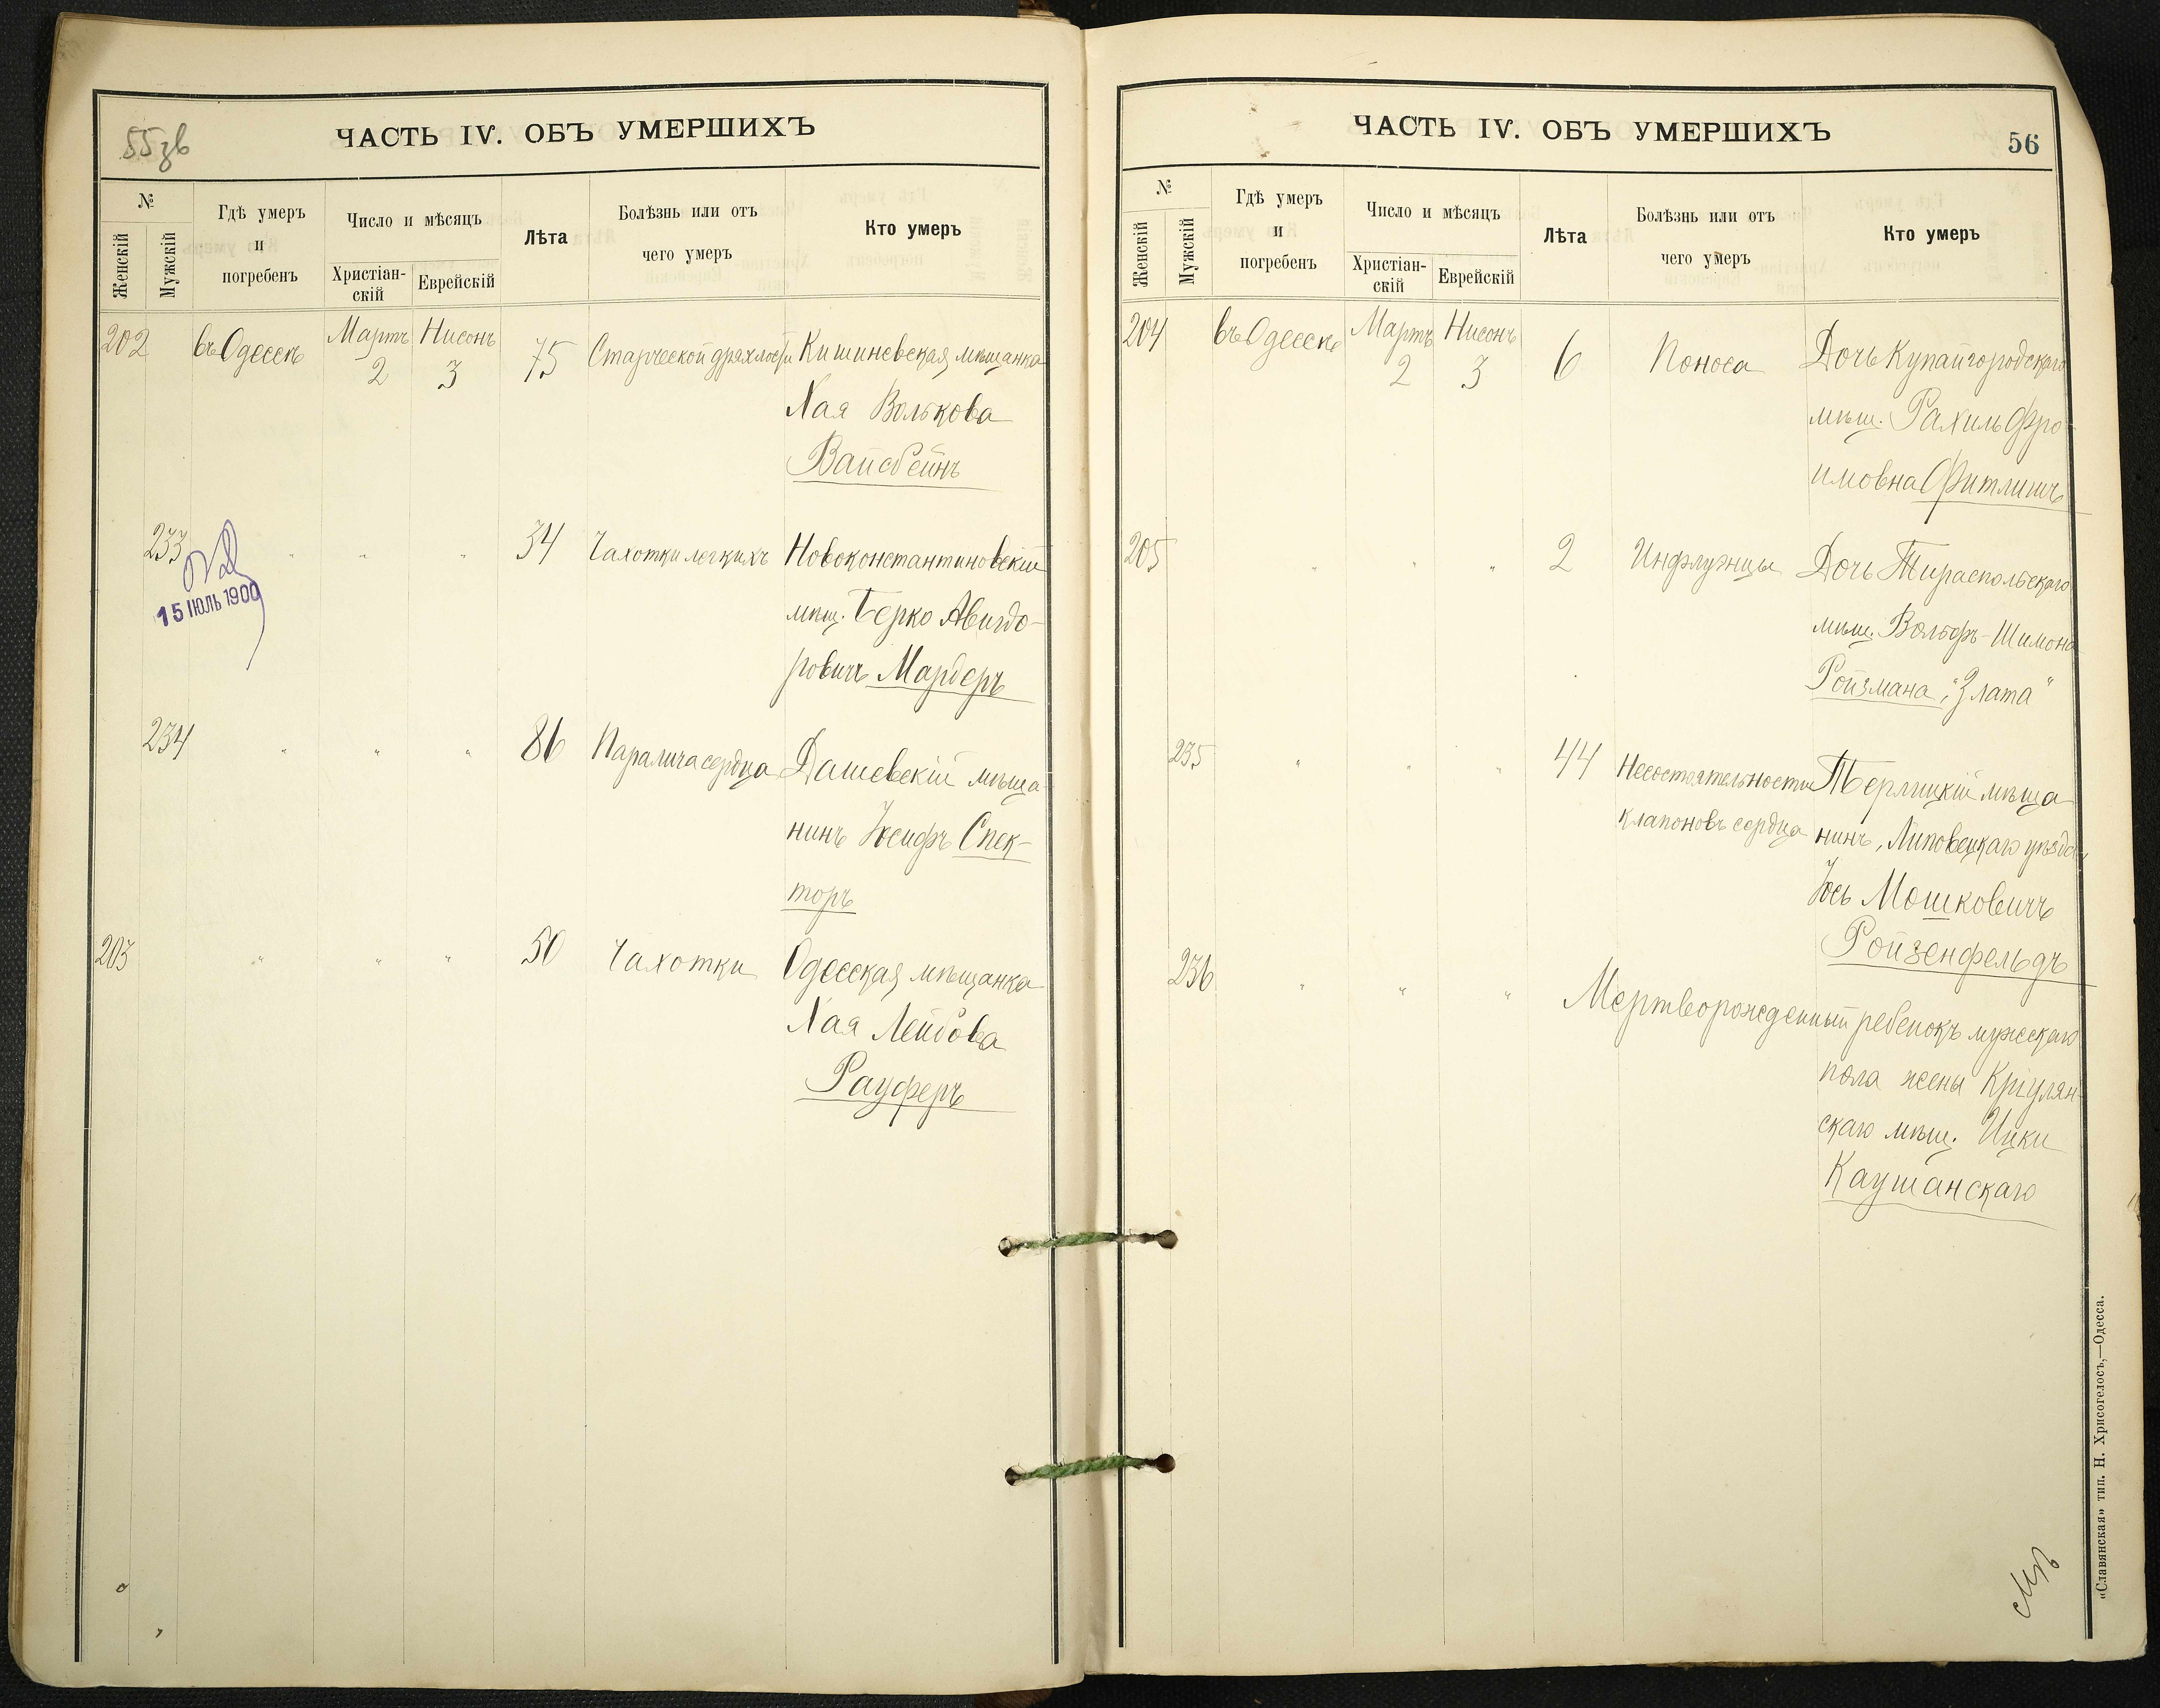 55зв
ЧАСТЬ IV. ОБЪ УМЕРШИХЪ
№
Женскій
Мужскій
Гдѣ умеръ
и
погребенъ
Число и мѣсяцъ
Христіан-
скій
Еврейскій
Лѣта
Болѣзнь или отъ
чего умеръ
Кто умеръ
202 въ Одессѣ Мартъ 2 Нисонъ 3 75 Старческой дряхлости Кишиневская мѣщанка
Хая Волькова
Вайсбейнъ
233 " " " 34 Чахотки легкихъ Новоконстантиновскій
мѣщ. Берко Авигдо-
ровичъ Мардеръ
15 ІЮЛЬ 1900
234 " " " 86 Паралича сердца Дашевскій мѣща-
нинъ Іосифъ Спек-
торъ
203 " " " 50 Чахотки Одесская мѣщанка
Хая Лейбова
Рауферъ
ЧАСТЬ IV. ОБЪ УМЕРШИХЪ
56
№
Женскій
Мужскій
Гдѣ умеръ
и
погребенъ
Число и мѣсяцъ
Христіан-
скій
Еврейскій
Лѣта
Болѣзнь или отъ
чего умеръ
Кто умеръ
204 въ Одессѣ Мартъ 2 Нисонъ 3 6 Поноса Дочь Купайгородскаго
мѣщ. Рахиль Фро-
имовна Фитлинъ
205 " " " 2 Инфлуэнцы Дочь Тираспольскаго
мѣщ. Вольфъ-Шимона
Ройзмана, "Злата"
235 " " " 44 Несостоятельности Терлицкій мѣща
клапоновъ сердца нинъ, Липовецкаго уѣзда
Іось Мошковичъ
Ройзенфельдъ
236 " " " Мертворожденный ребенокъ мужескаго
пола жены Кріулян-
скаго мѣщ. Ицки
Каушанскаго
«Славянская» тип. Н. Хрисогелосъ,—Одесса.